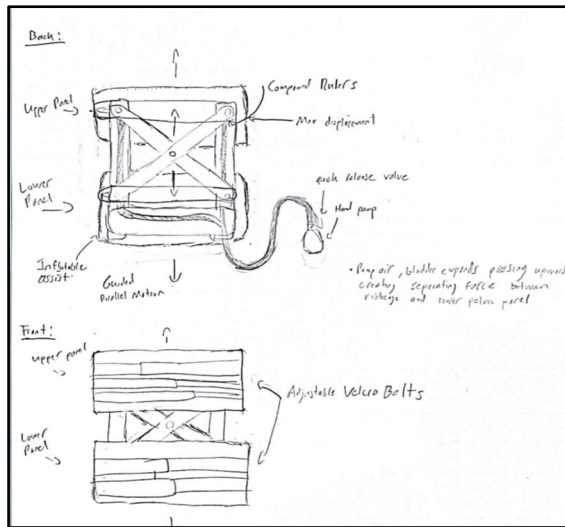 Back:
Upper Panel
Compound Rulers
Max displacement
Lower Panel
quick release valve
Hand pump
Inflatable assist
Guided Parallel Motion
• Pump air, bladder expands pressing upward
creating seperating force between
ribcage and lower pelvic panel
Front:
Upper panel
Adjustable Velcro Belts
Lower Panel